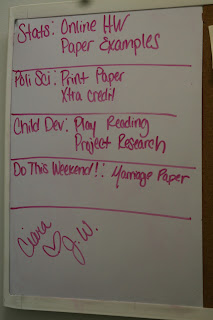 Stats: Online HW
Paper Examples
Poli Sci: Print Paper
Xtra Credit
Child Dev: Play Reading
Project Research
Do This Weekend!: Marriage Paper
Ciera
♡ J.W.